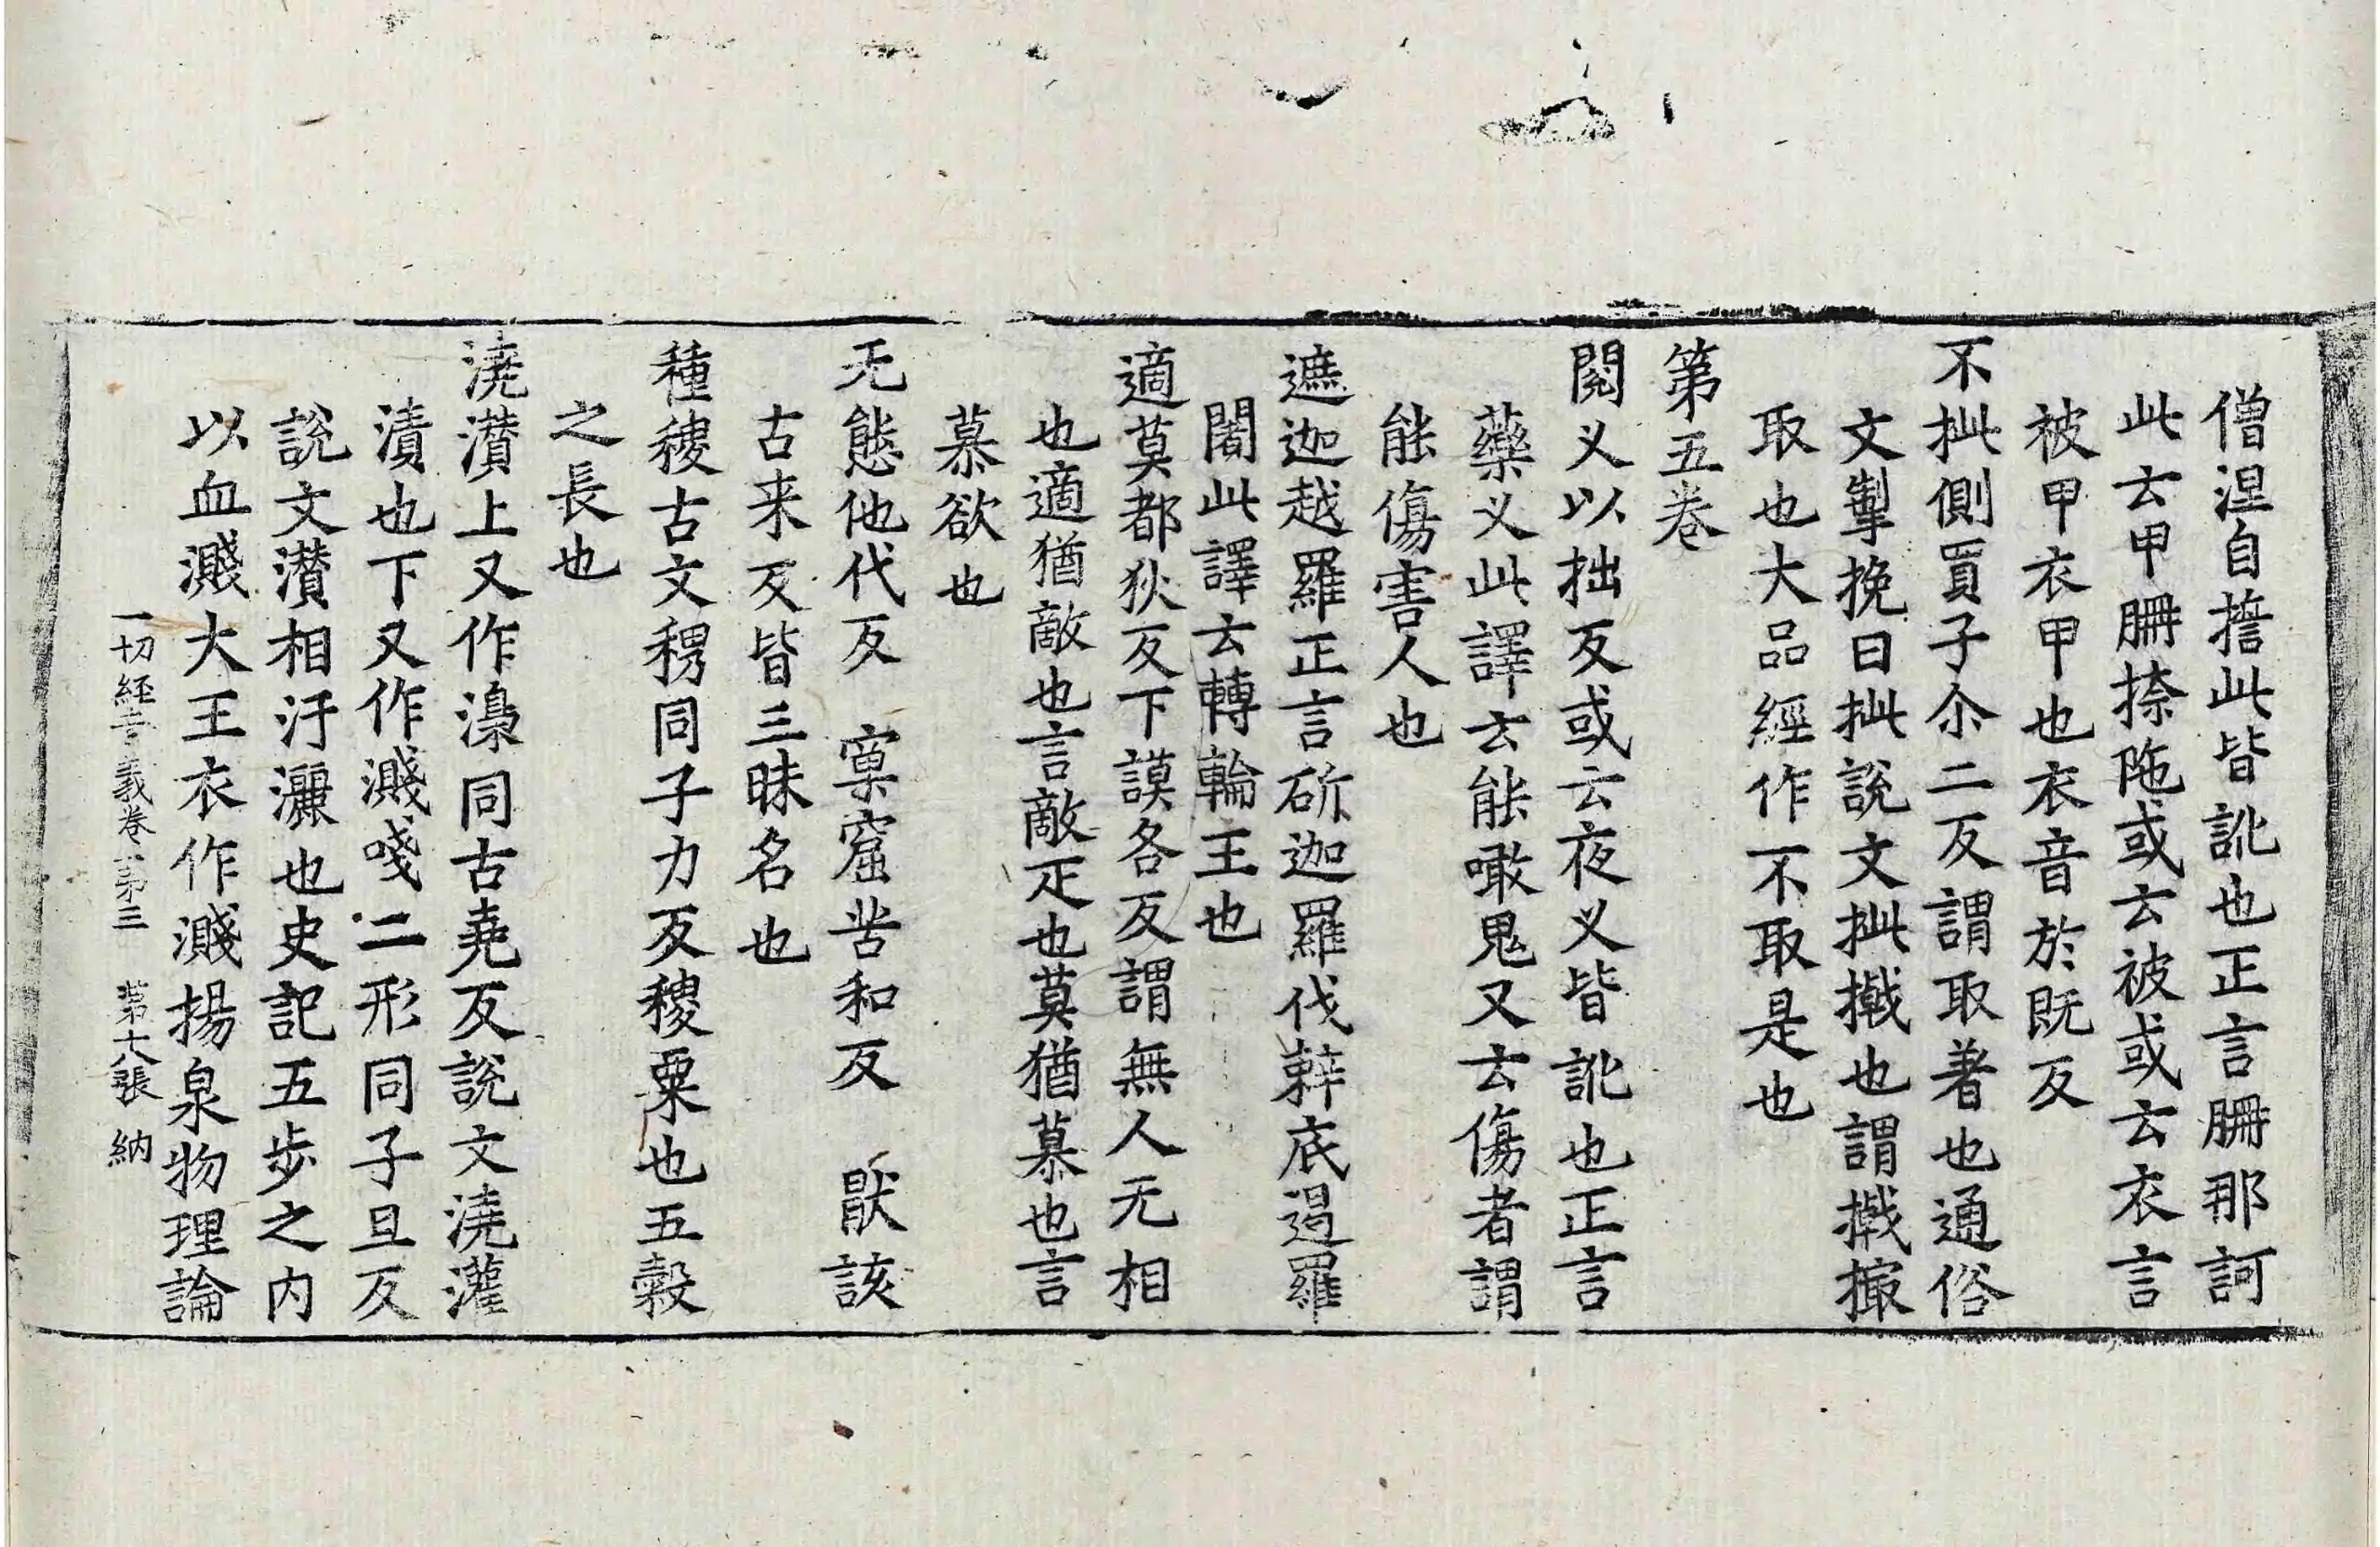 僧涅自㨷此皆訛也正言䏺那訶
此云甲䏺捺陁或云被或云衣言
被甲衣甲也衣音於既反
不㧗側買子尒二反謂取著也通俗
文掣挽曰㧗說文㧗撠也謂撠撮
取也大品經作不取是也
第五卷
閱叉以拙反或云夜叉皆訛也正言
藥叉此譯云能噉鬼又云傷者謂
能傷害人也
遮迦越羅正言斫迦羅伐辢底遏羅
闍此譯云轉輪王也
適莫都狄反下謨各反謂無人无相
也適猶敵也言敵疋也莫猶慕也言
慕欲也
无態他代反 窠窟苦和反 猒該
古来反皆三昧名也
種稷古文稷同子力反稷粟也五穀
之長也
澆灒上又作澆同古堯反說文澆灌
漬也下又作濺㳻二形同子旦反
說文灒相汙灑也史記五步之內
以血濺大王衣作濺揚泉物理論
一切經音義卷第三 第十八張 納